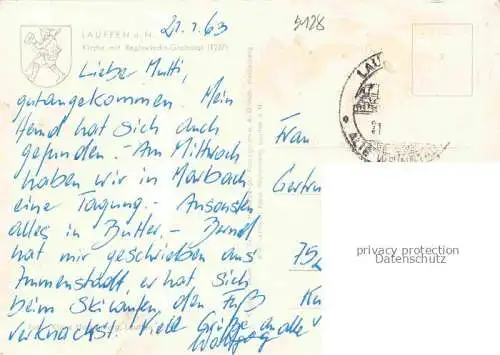 21.1.63
5128
LAUFFEN a. N.
Kirche mit Regiswindis-Grabmal (1227)
Lieber Mutti,
gut angekommen. Mein
Hemd hat sich auch
gefunden. - Am Mittwoch
haben wir in Marbach
eine Tagung. - Ansonsten
alles in Butter. - Bernd
hat mir geschrieben aus
Immenstadt, er hat sich
beim Skilaufen den Fuß
verknackst. Viele Grüße an alle
Wolfgang
LAU
21
Frau
Gertru
75
privacy protection
Datenschutz